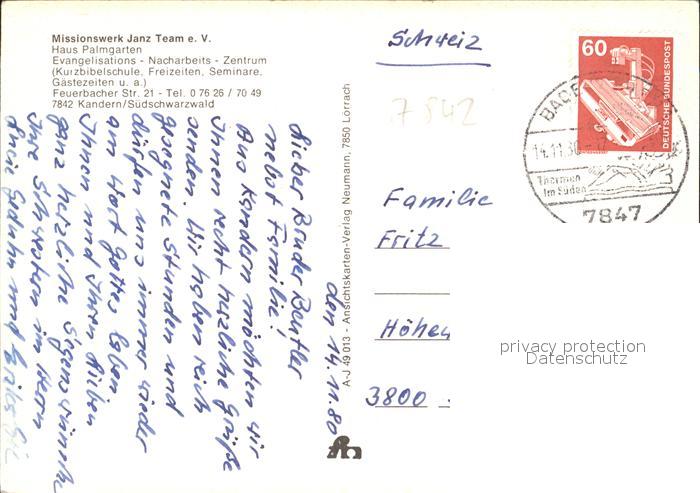 Missionswerk Janz Team e. V.
Haus Palmgarten
Evangelisations - Nacharbeits - Zentrum
(Kurzbibelschule, Freizeiten, Seminare,
Gästezeiten u. a.)
Feuerbacher Str. 21 - Tel. 0 76 26 / 70 49
7842 Kandern/Südschwarzwald
den 14.11.80
Lieber Bruder
nebst Familie!
Aus Kandern möchten wir
Ihnen recht herzliche Grüße
senden. Wir haben reich
gesegnete Stunden und
dürfen uns immer wieder
am Wort Gottes laben
Ihnen und Ihren Lieben
ganz herzliche Segenswünsche
Ihre Schwestern im Herrn
und
A-J 49 013 - Ansichtskarten-Verlag Neumann, 7850 Lörrach
Schweiz
7842
Familie
Fritz
Höheweg
3800
60
DEUTSCHE BUNDESPOST
14.11.80
Thermen
im Süden
7847
privacy protection
Datenschutz